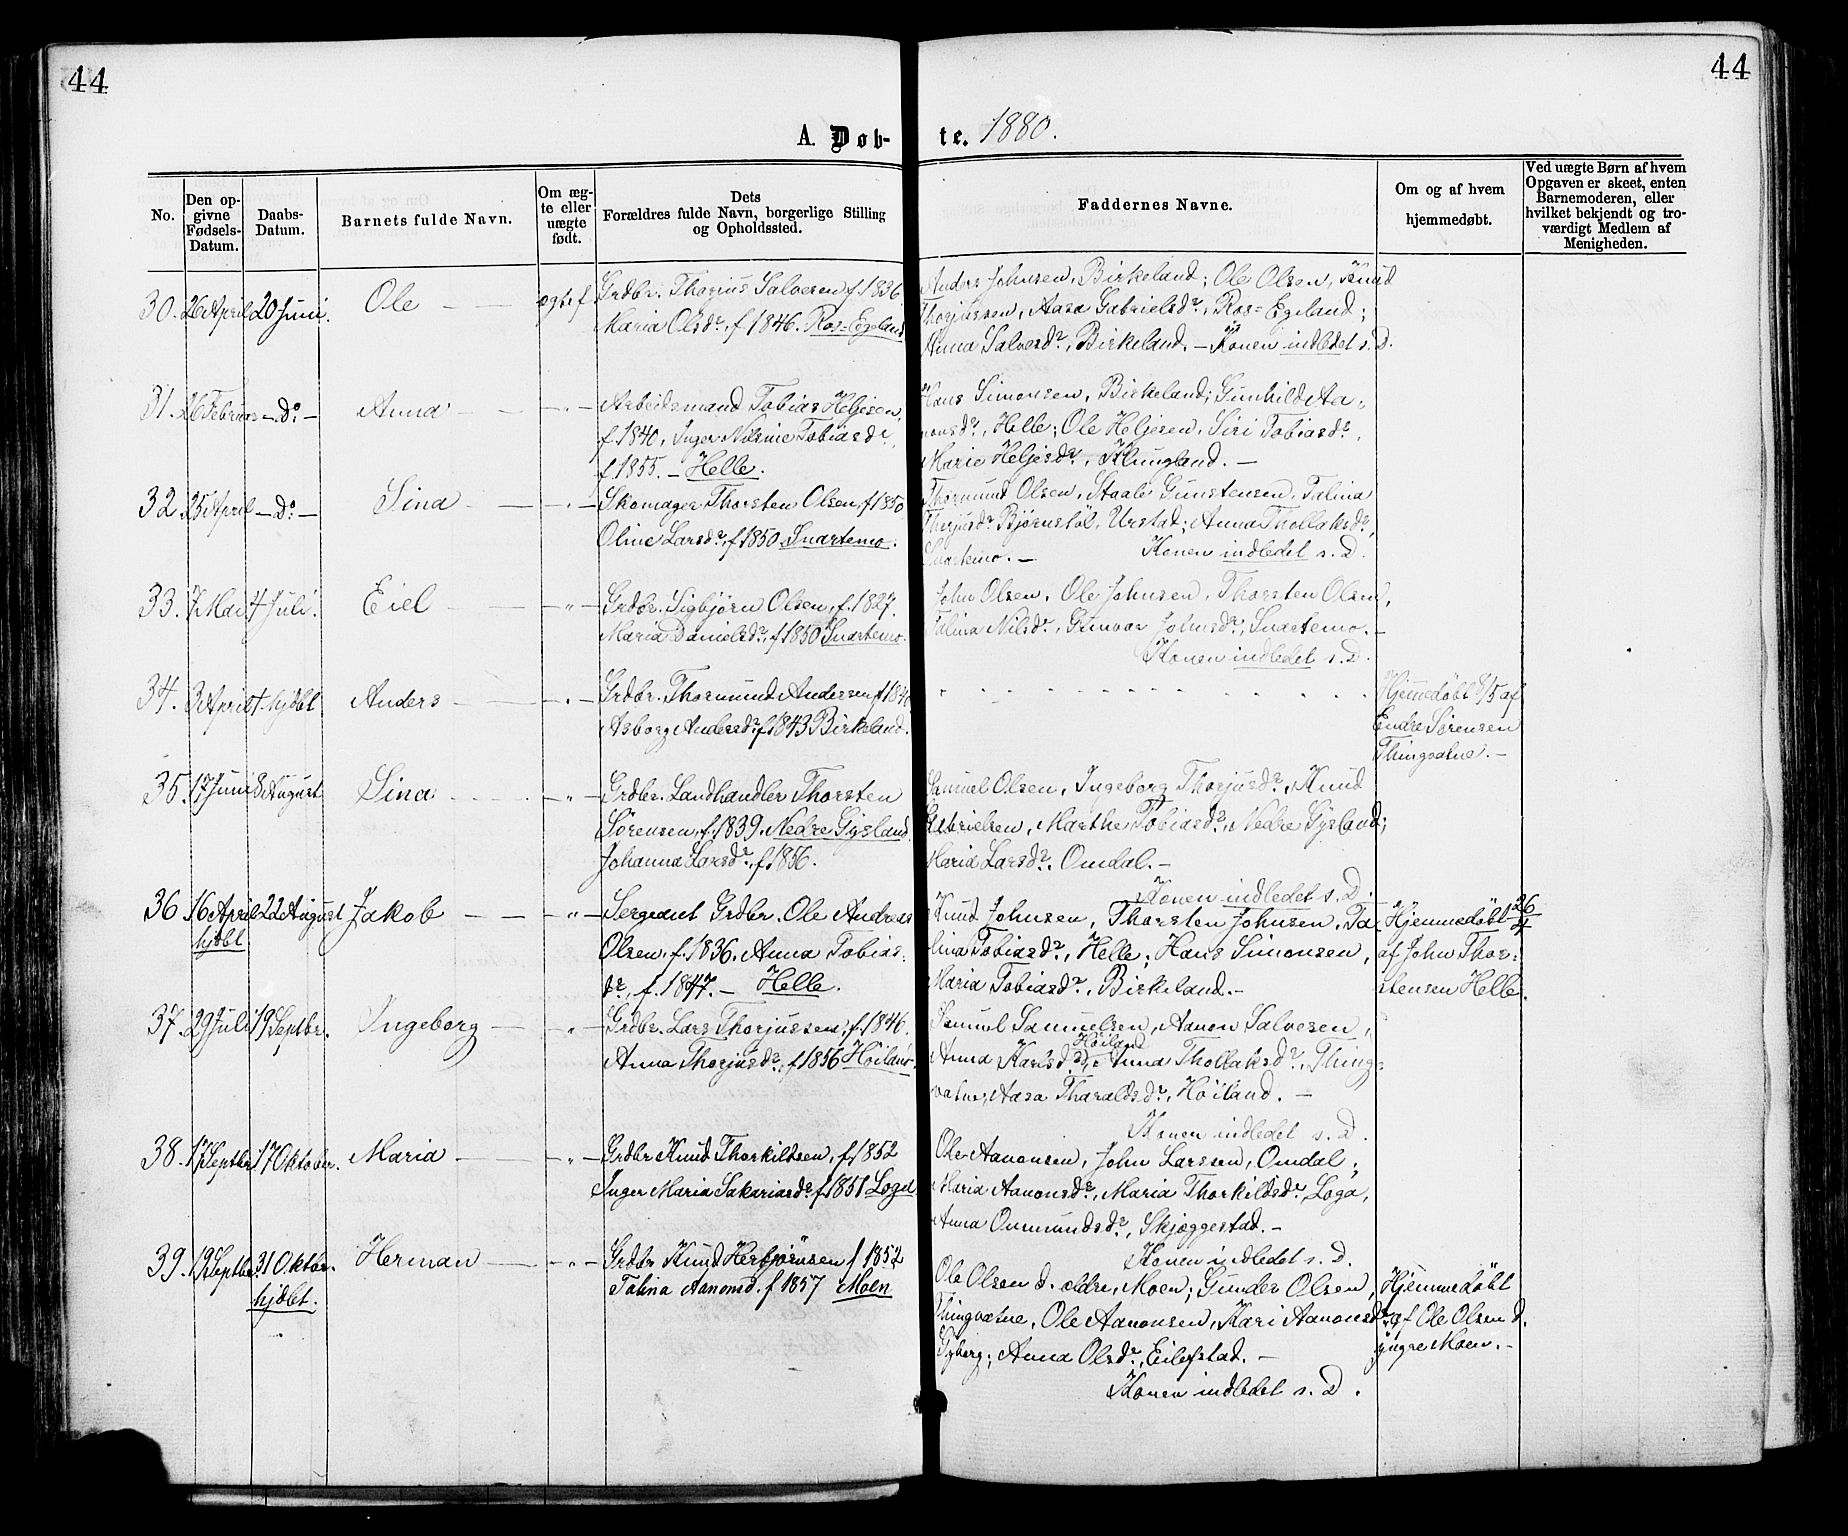 44
44
A. Døb-
te. 1880.
No.
Den op-
givne
Fødsels-
Datum.
Daabs-
Datum.
Barnets fulde Navn.
Om æg-
te eller
uægte
født.
Dets
Forældres fulde Navn, borgerlige Stilling
og Opholdssted.
Faddernes Navne.
Om og af hvem
hjemmedøbt.
Ved uægte Børn af hvem
Opgaven er skeet, enten
Barnemoderen, eller
hvilket bekjendt og tro-
værdigt Medlem af
Menigheden.
30. 26 April 20 Juni. Ole
Grdbr. Thorjus Salvesen f. 1836
Maria Olsdr, f 1846. Ros=Egeland
Anders Johnsen, Birkeland; Ole Olsen, Knud
Thorjussen, Aasa Gabrielsdr, Ros=Egeland;
Anna Salvesdr, Birkeland. – Konen indledet s. D.
31. 26 Februar – Do – Anna – – „ –
Arbeidsmand Tobias Heljesen,
f. 1840, Inger Nilsine Tobiasdr,
f 1855. – Helle.
Hans Simonsen, Birkeland; Gunhild Aa-
nonsdr, Helle; Ole Heljesen, Siri Tobiasdr,
Marie Heljesdr, Klungland. –
32. 25 April – Do – Sina – – „ –
Skomager Thorsten Olsen, f 1850
Oline Larsdr, f 1850 Snartemo.
Thormund Olsen, Staale Gunstensen, Talina
Thorjusdr Bjørnstøl, Urstad; Anna Thollaksdr,
Snartemo. – Konen indledet s. D.
33. 7 Mai 4 Juli. Eiel – – „ –
Grdbr. Sigbjørn Olsen, f. 1827.
Maria Danielsdr, f 1850 Snartemo.
John Olsen, Ole Johnsen, Thorsten Olsen,
Talina Nilsdr, Gunvor Johnsdr, Snartemo. –
Konen indledet s. D.
34. 3 April hjdbt Anders – – „ –
Grdbr. Thormund Andersen f 1840
Asborg Andersdr f 1843 Birkeland.
Hjemmedøbt 8/5 af
Endre Sørensen
Thingvatne. –
35. 17 Juni 8 August Sina – – „ –
Grdbr. Landhandler Thorsten
Sørensen, f. 1839. Nedre Gysland
Johanna Larsdr, f 1856.
Samuel Olsen, Ingeborg Thorjusdr, Knud
Gabrielsen, Marthe Tobiasdr, Nedre Gysland;
Maria Larsdr, Omdal. –
Konen indledet s. D.
36 16 April 22 August Jakob – – „ –
hjdbt
Sergeant Grdbr. Ole Andreas
Olsen, f. 1836. Anna Tobias-
dr, f. 1847. – Helle.
Knud Johnsen, Thorsten Johnsen, Ta-
lina Tobiasdr, Helle; Hans Simonsen,
Maria Tobiasdr, Birkeland. –
Hjemmedøbt 26/4
af John Thor-
stensen Helle.
37. 29 Juli 19 Septbr. Ingeborg – – „ –
Grdbr. Lars Thorjussen, f. 1846.
Anna Thorjusdr, f 1856 Høiland.
Samuel Samuelsen, Aanon Salvesen,
Høiland
Anna Karlsdr, Anna Thollaksdr, Thing-
vatne, Aasa Tharaldsdr, Høiland. –
Konen indledet s. D.
38. 17 Septbr 17 Oktober. Maria – – „ –
Grdbr Knud Thorkildsen, f 1852
Inger Maria Sakariasdr f 1851 Loga
Ole Aanonsen, John Larssen, Omdal;
Maria Aanonsdr, Maria Thorkildsdr, Loga,
Anna Onmundsdr, Skjæggestad. –
Konen indledet s. D.
39. Septbr. 31 Oktbr. Herman – – „ –
hjdbt.
Grdbr Knud Herbjørnsen f 1852
Talina Aanonsd. f 1857 Moen
Ole Olsen d. ældre, Moen; Gunder Olsen,
Thingvatne, Ole Aanonsen, Kari Aanonsdr,
Gyberg; Anna Olsdr, Eilefstad. –
Konen indledet s. D.
Hjemmedøbt
af Ole Olsen d.
yngre Moen. –